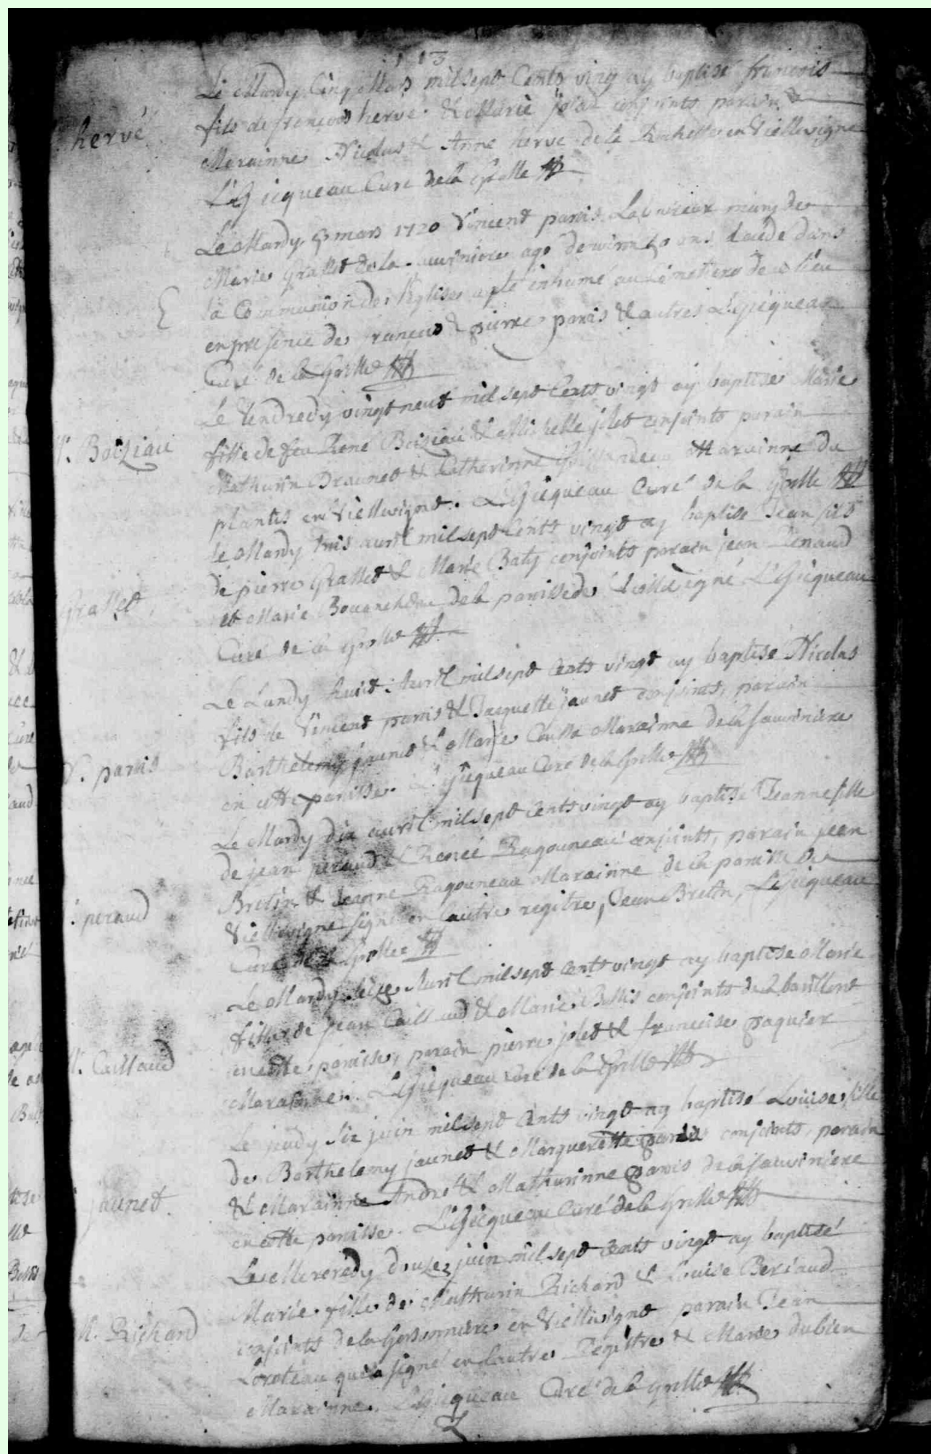 113
hervé
Le Mardy Cinq Mars mil sept Cents ving ay baptisé francois
fils de francois hervé & Marie conjoints parain &
Marainne Nicolas & Anne hervé de la Rochette en Viellevigne
L Gicqueau Curé de la Grolle
Le Mardy mars 1720 Vincent paris Laboureur mary de
Marie Grasset de la sauviniere agé de ans decedé dans
la Communion de l'Eglise a eté inhumé au Cimetiere de ce lieu
en presence de francois & pierre paris & autres L Gicqueau
Curé de la Grolle
Le Vendredy vingt neuf mil sept Cents vingt ay baptisé Marie
M. Boiziau
fille de feu René Boiziau & Michelle jolet conjoints parain
Mathurin Draunet & Catherinne Marainne du
plantis en Viellevigne. L Gicqueau Curé de la Grolle
le Mardy avril mil sept Cents vingt ay baptisé Jean fils
Grasset
de pierre Grasset & Marie Baty conjoints parain jean Renaud
et Marie de la paroisse de L Gicqueau
Curé de la Grolle
Le Lundy huit Avril mil sept Cents vingt ay baptisé Nicolas
fils de Vincent paris & Jacquette jaunet conjoints, parain
N. paris
Barthelemy jaunet & Marie Marainne de la sauviniere
en cette paroisse. L Gicqueau Curé de la Grolle
Le Mardy dix avril mil sept Cents vingt ay baptisé Jeanne fille
de jean peraud & Renée Ragouneau conjoints, parain jean
J. peraud
Bretin & Jeanne Ragouneau Marainne de la paroisse de
Viellevigne signé en l'autre regitre, Jean Bretin, L Gicqueau
Curé de la Grolle
Le Mardy seize Avril mil sept Cents vingt ay baptisé Marie
M. Caillaud
fille de jean Caillaud & Marie conjoints de
en cette paroisse, parain pierre jolet & francoise paquier
Marainne. L Gicqueau Curé de la Grolle
Le jeudy six juin mil sept Cents vingt ay baptisé Louise fille
jaunet
de Barthelemy jaunet & Margueritte paris conjoints, parain
& Marainne André & Mathurinne paris de la sauviniere
en cette paroisse. L Gicqueau Curé de la Grolle
Le Mercredy douze juin mil sept Cents vingt ay baptisé
Marie fille de Mathurin Richard & Louise Beriaud
M. Richard
conjoints de la en Viellevigne parain Jean
Loreteau qui a signé en l'autre Regittre & Marie dubien
Marainne. L Gicqueau Curé de la Grolle